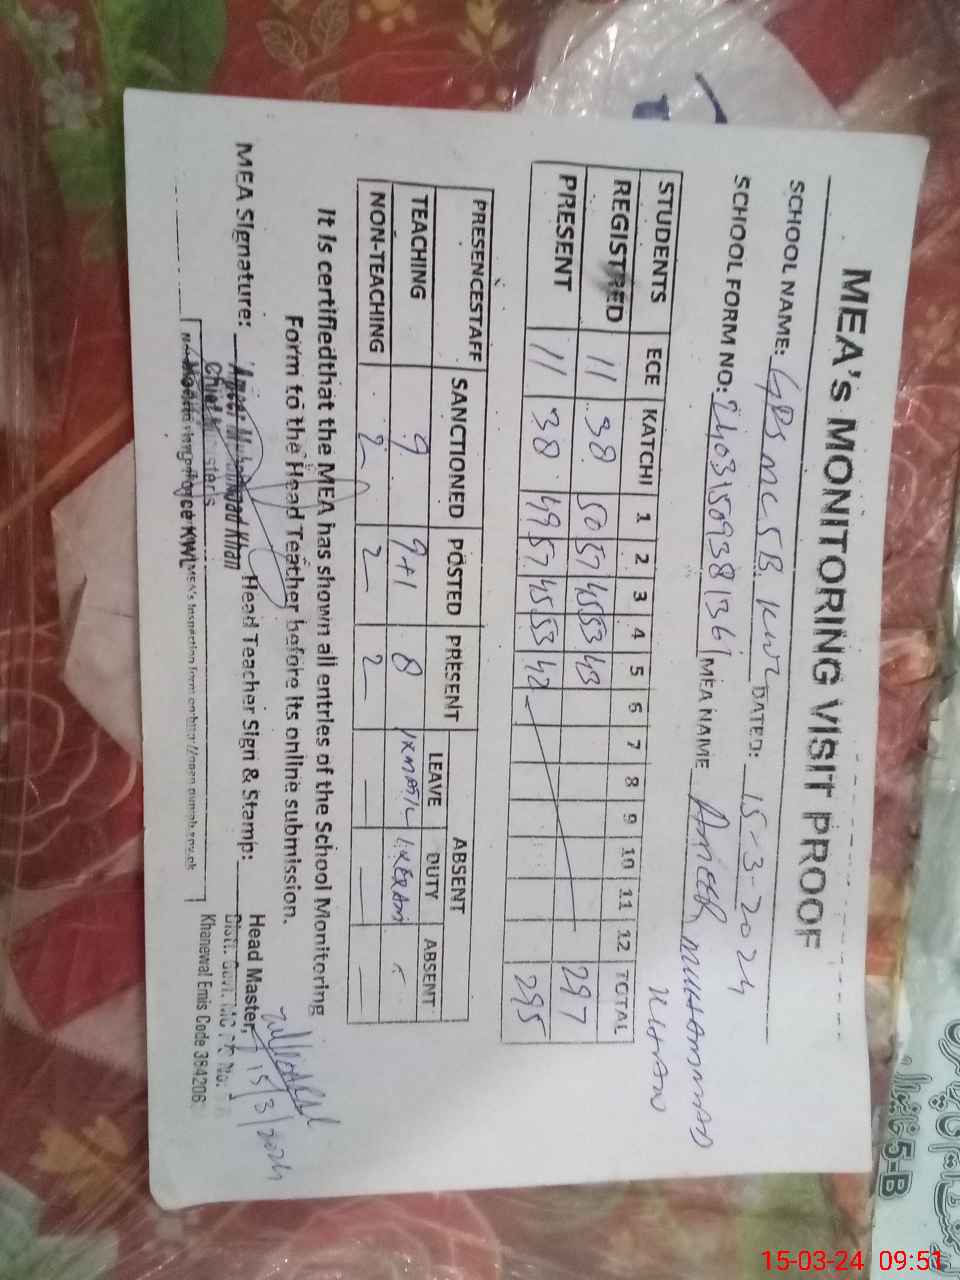 MEA's MONITORING VISIT PROOF
SCHOOL NAME: GPS MC 5B KWL DATED: 15-3-2024
SCHOOL FORM NO: 2403150938136 MEA NAME AMEER MUHAMMAD KHAN
STUDENTS ECE KATCHI 1 2 3 4 5 6 7 8 9 10 11 12 TOTAL
REGISTRED 11 38 50 57 45 53 43 297
PRESENT 11 38 49 57 45 53 42 295
PRESENCESTAFF SANCTIONED POSTED PRESENT ABSENT
LEAVE DUTY ABSENT
TEACHING 9 9+1 8
NON-TEACHING 2 2 2 — — —
It is certifiedthat the MEA has shown all entries of the School Monitoring
Form to the Head Teacher before its online submission.
MEA Signature: Head Teacher Sign & Stamp:
Ameer Muhammad Khan
Head Master,
15/3/2024
Khanewal Emis Code 384206
5-B
15-03-24 09:51